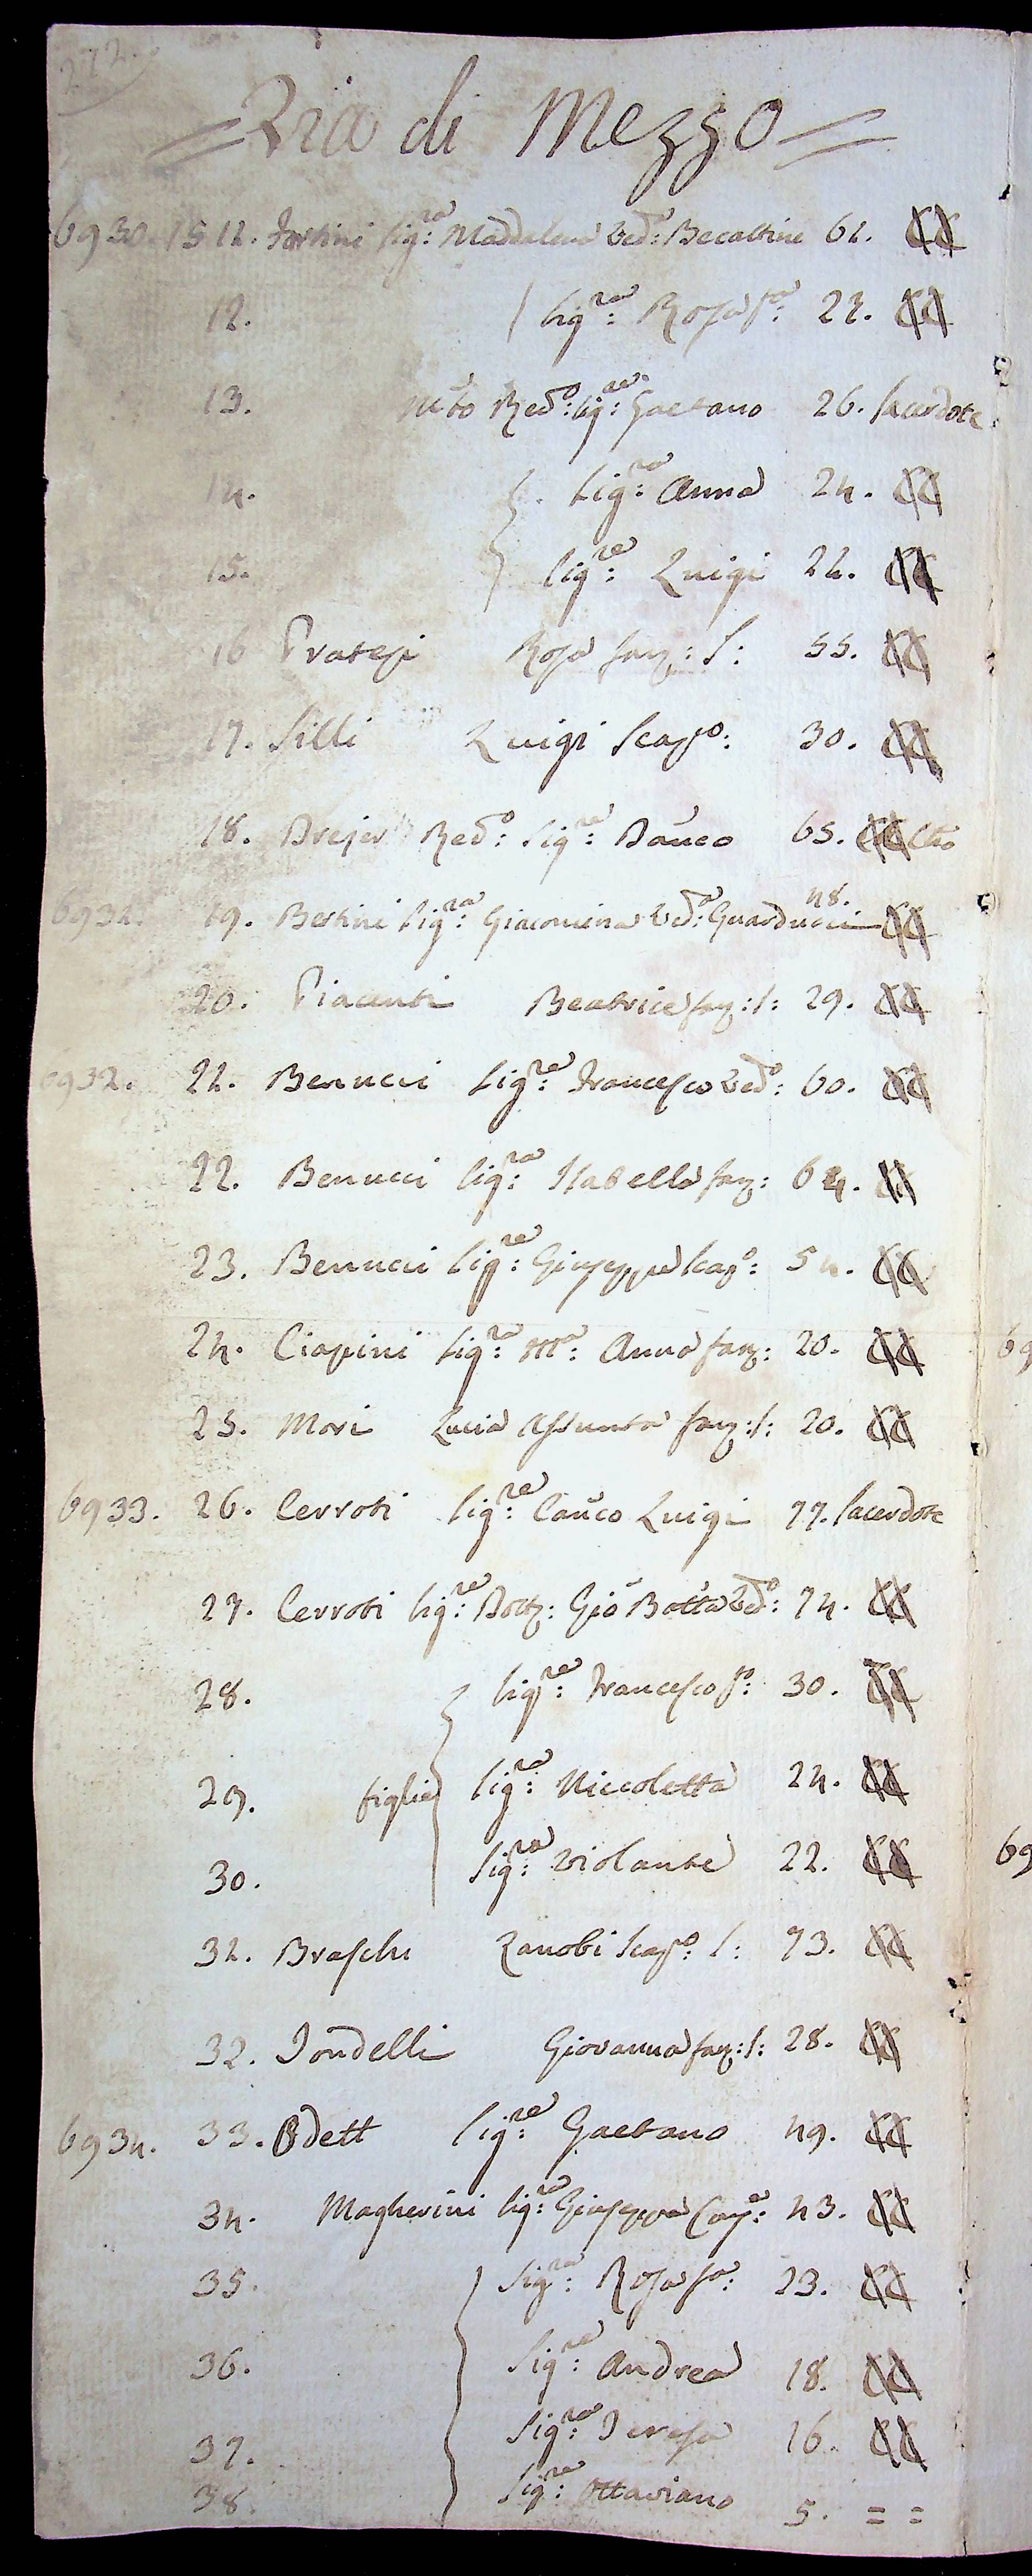 272.
= Via di Mezzo =
6930. 1511. Fortini Sig:ra Maddalena Ved:a Becattini 61.
12. Sig:ra Rosa f:a 27.
13. Red:o Sig:re Gaetano 26. Sacerdote
14. Sig:ra Anna 24.
15. Sig:re Luigi 21.
16 Pratesi Rosa fanz: S: 55.
17. Silli Luigi Scapo: 30.
18. Red:o Sig:re 65.
6931. 19. Bertini Sig:ra Giacomina Ved:a Guarducci 48.
20. Piacenti Beatrice fanz: S: 29.
6932. 21. Benucci Sig:re Francesco Ved:o 60.
22. Benucci Sig:ra Isabella fanz: 64.
23. Benucci Sig:re Giuseppe Scapo: 54.
24. Ciapini Sig:ra M:a Anna fanz: 20.
25. Mori Lucia Assunta fanz: S: 20.
6933. 26. Cerroti Sig:re Can:co Luigi 77. Sacerdote
27. Cerroti Sig:re Dott: Gio Batta Ved:o 74.
28. Sig:re Francesco f:o 30.
29. figlie Sig:ra Niccoletta 24.
30. Sig:ra Violante 22.
31. Braschi Zanobi Scapo: S: 73.
32. Tondelli Giovanna fanz: S: 28.
6934. 33. Odett Sig:re Gaetano 49.
34. Magherini Sig:ra Giuseppa Con: 43.
35. Sig:ra Rosa f:a 23.
36. Sig:re Andrea 18.
37. Sig:ra Teresa 16.
38. Sig:re Ottaviano 5. = =